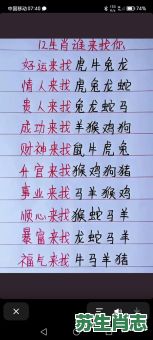 中国移动 07:40
12生肖谁来找你
好运来找虎牛兔龙
情人来找虎兔龙蛇
贵人来找兔龙蛇马
成功来找羊猴鸡狗
财神来找鼠牛虎兔
升官来找猴鸡狗猪
事业来找马羊猴鸡
顺心来找猴蛇马羊
暴富来找龙蛇马羊
福气来找牛马羊猪
苏生肖志